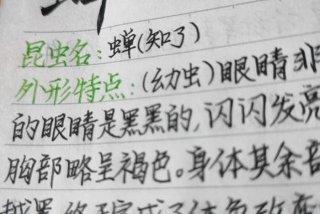 昆虫名:蝉(知了)
外形特点:(幼虫)眼睛非
的眼睛是黑黑的,闪闪发亮
胸部略呈褐色。身体其余部